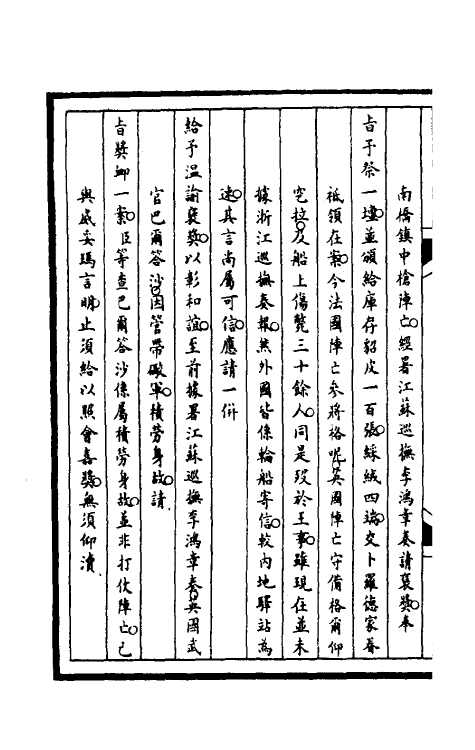 南橋鎮中槍陣亡經署江蘇巡撫李鴻章奏請褒獎奉
旨予祭一壇並頒給庫存貂皮一百張綵絨四端交卜羅德家眷
祗領在案今法國陣亡參將格呢英國陣亡守備格爾仰
窕拉及船上傷斃三十餘人同是歿於王事雖現在並未
據浙江巡撫奏報然外國皆係輪船寄信較內地驛站為
速其言尚屬可信應請一併
給予溫諭褒獎以彰和誼至前據署江蘇巡撫李鴻章奏英國武
官巴爾答沙因管帶礮軍積勞身故請
旨獎卹一案臣等查巴爾答沙係屬積勞身故並非打仗陣亡已
與威妥瑪言明止須給以照會嘉獎無須仰瀆